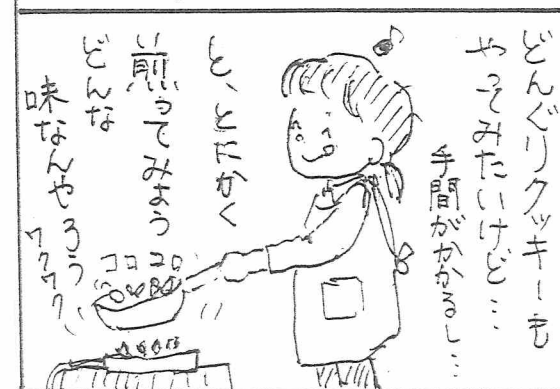 どんぐりクッキーも
やってみたいけど…
手間がかかるし…
と、とにかく
煎ってみよう
い
どんな
味なんやろう
ワクワク
コロコロ